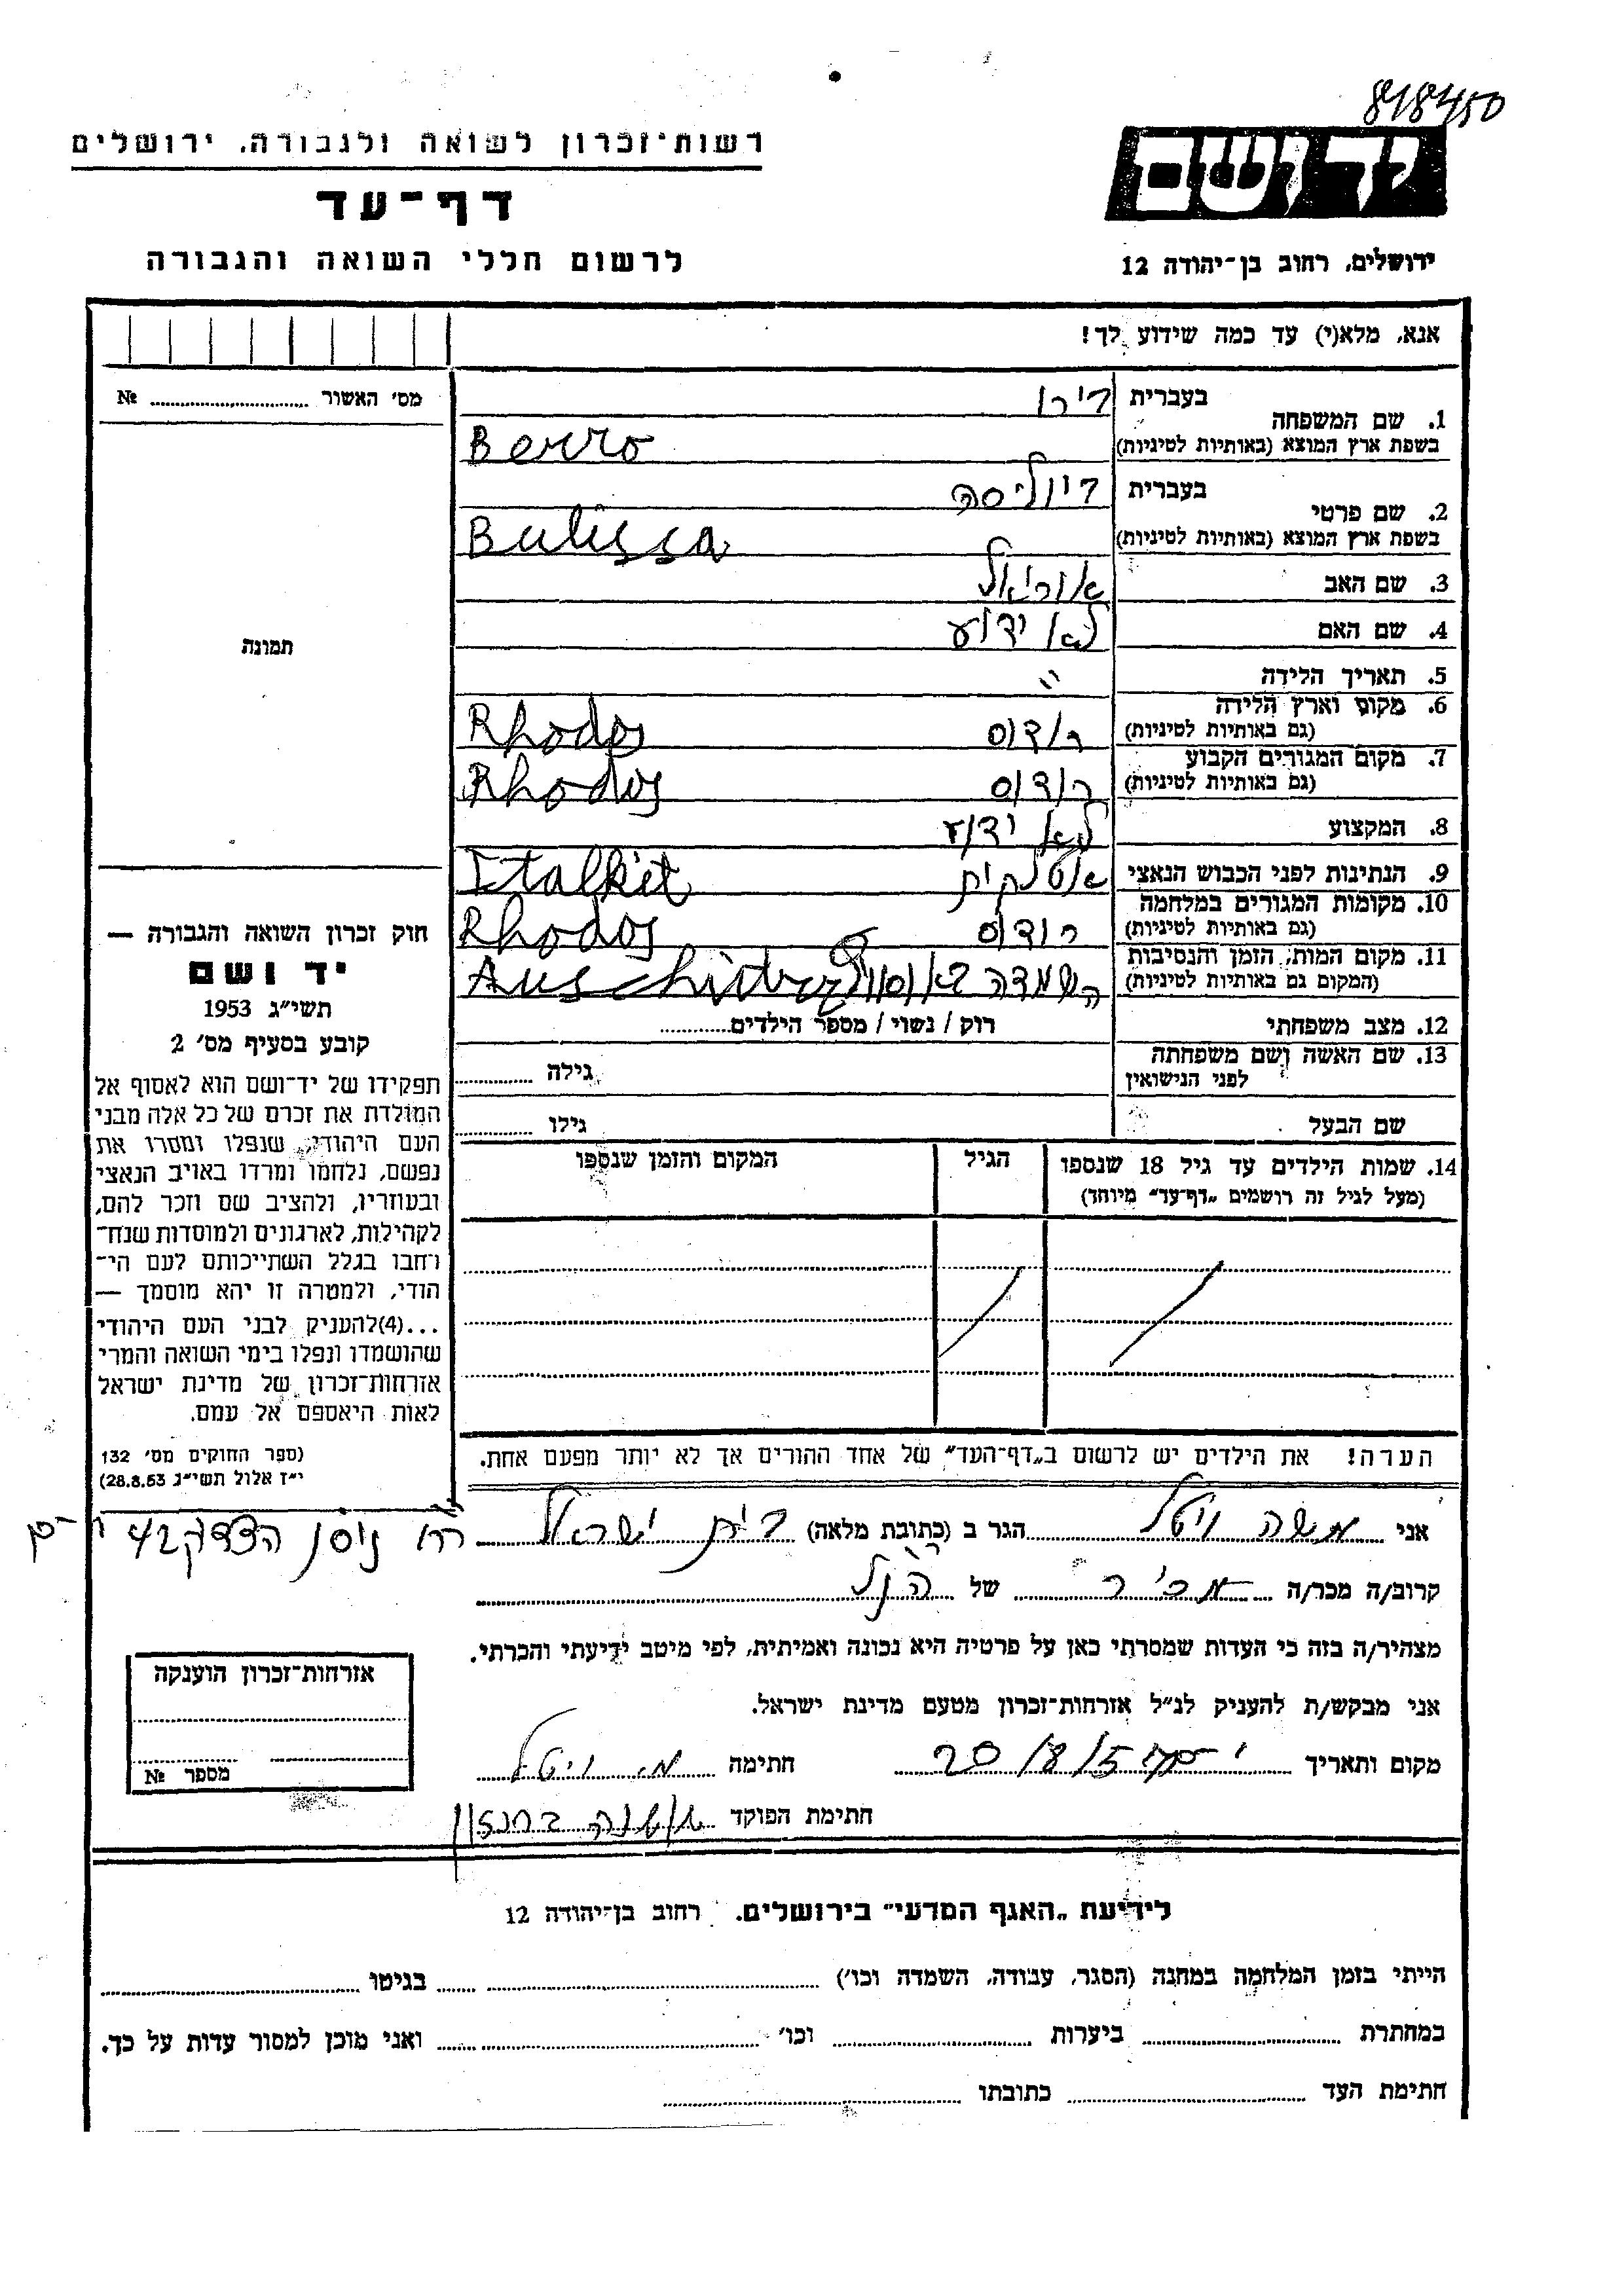 818450
רשות־זכרון לשואה ולגבורה, ירושלים
יד ושם
דף־עד
לרשום חללי השואה והגבורה
ירושלים, רחוב בן־יהודה 12
אנא, מלא(י) עד כמה שידוע לך!
מס׳ האשור № 
1. שם המשפחה
בעברית בירו
בשפת ארץ המוצא (באותיות לטיניות) Berro
2. שם פרטי
בעברית בוליסה
בשפת ארץ המוצא (באותיות לטיניות) Bulissa
3. שם האב אוריאל
4. שם האם לא ידוע
5. תאריך הלידה "
6. מקום וארץ הלידה
(גם באותיות לטיניות) רודוס Rhodos
7. מקום המגורים הקבוע
(גם באותיות לטיניות) רודוס Rhodos
8. המקצוע לא ידוע
9. הנתינות לפני הכבוש הנאצי איטלקית Italkit
10. מקומות המגורים במלחמה
(גם באותיות לטיניות) רודוס Rhodos
11. מקום המות, הזמן והנסיבות
(המקום גם באותיות לטיניות) השמדה Auschidz
12. מצב משפחתי רוק / נשוי / מספר הילדים
13. שם האשה ושם משפחתה
לפני הנישואין גילה
שם הבעל גילו
14. שמות הילדים עד גיל 18 שנספו
(מעל לגיל זה רושמים „דף־עד” מיוחד)
הגיל
המקום והזמן שנספו
הערה! את הילדים יש לרשום ב„דף־העד” של אחד ההורים אך לא יותר מפעם אחת.
תמונה
חוק זכרון השואה והגבורה —
יד ושם
תשי״ג 1953
קובע בסעיף מס׳ 2
תפקידו של יד־ושם הוא לאסוף אל
המולדת את זכרם של כל אלה מבני
העם היהודי, שנפלו ומסרו את
נפשם, נלחמו ומרדו באויב הנאצי
ובעוזריו, ולהציב שם וזכר להם,
לקהילות, לארגונים ולמוסדות שנח־
רחבו בגלל השתייכותם לעם הי־
הודי, ולמטרה זו יהא מוסמך —
...(4)להעניק לבני העם היהודי
שהושמדו ונפלו בימי השואה והמרי
אזרחות־זכרון של מדינת ישראל
לאות היאספם אל עמם.
(ספר החוקים מס׳ 132
י״ז אלול תשי״ג 28.8.53)
אני משה ויטל הגר ב (כתובת מלאה) בית ישראל רח׳ ניסן 42
קרוב/ה מכר/ה מכיר של הנ"ל
מצהיר/ה בזה כי העדות שמסרתי כאן על פרטיה היא נכונה ואמיתית, לפי מיטב ידיעתי והכרתי.
אני מבקש/ת להעניק לנ״ל אזרחות־זכרון מטעם מדינת ישראל.
מקום ותאריך 20/8/5 חתימה מ. ויטל
חתימת הפוקד
אזרחות־זכרון הוענקה
מספר №
לידיעת „האגף המדעי” בירושלים. רחוב בן־יהודה 12
הייתי בזמן המלחמה במחנה (הסגר, עבודה, השמדה וכו׳) בגיטו
במחתרת ביערות וכו׳ ואני מוכן למסור עדות על כך.
חתימת העד כתובתו